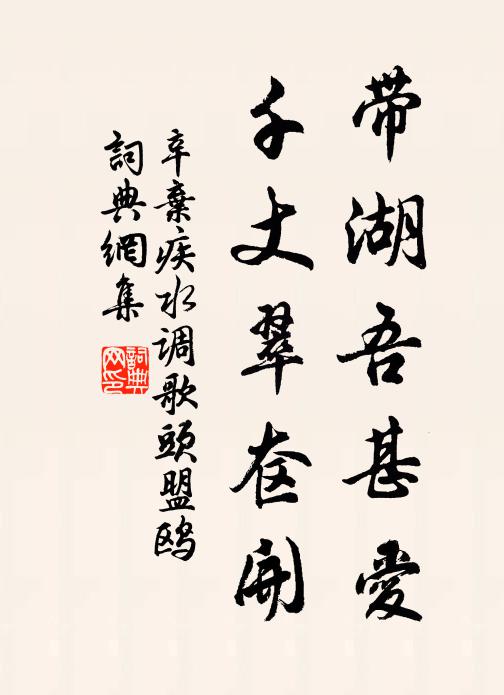 带湖吾甚愛
千丈翠奁開
辛棄疾水调歌頭盟鸥
詞典網集
詞典网印